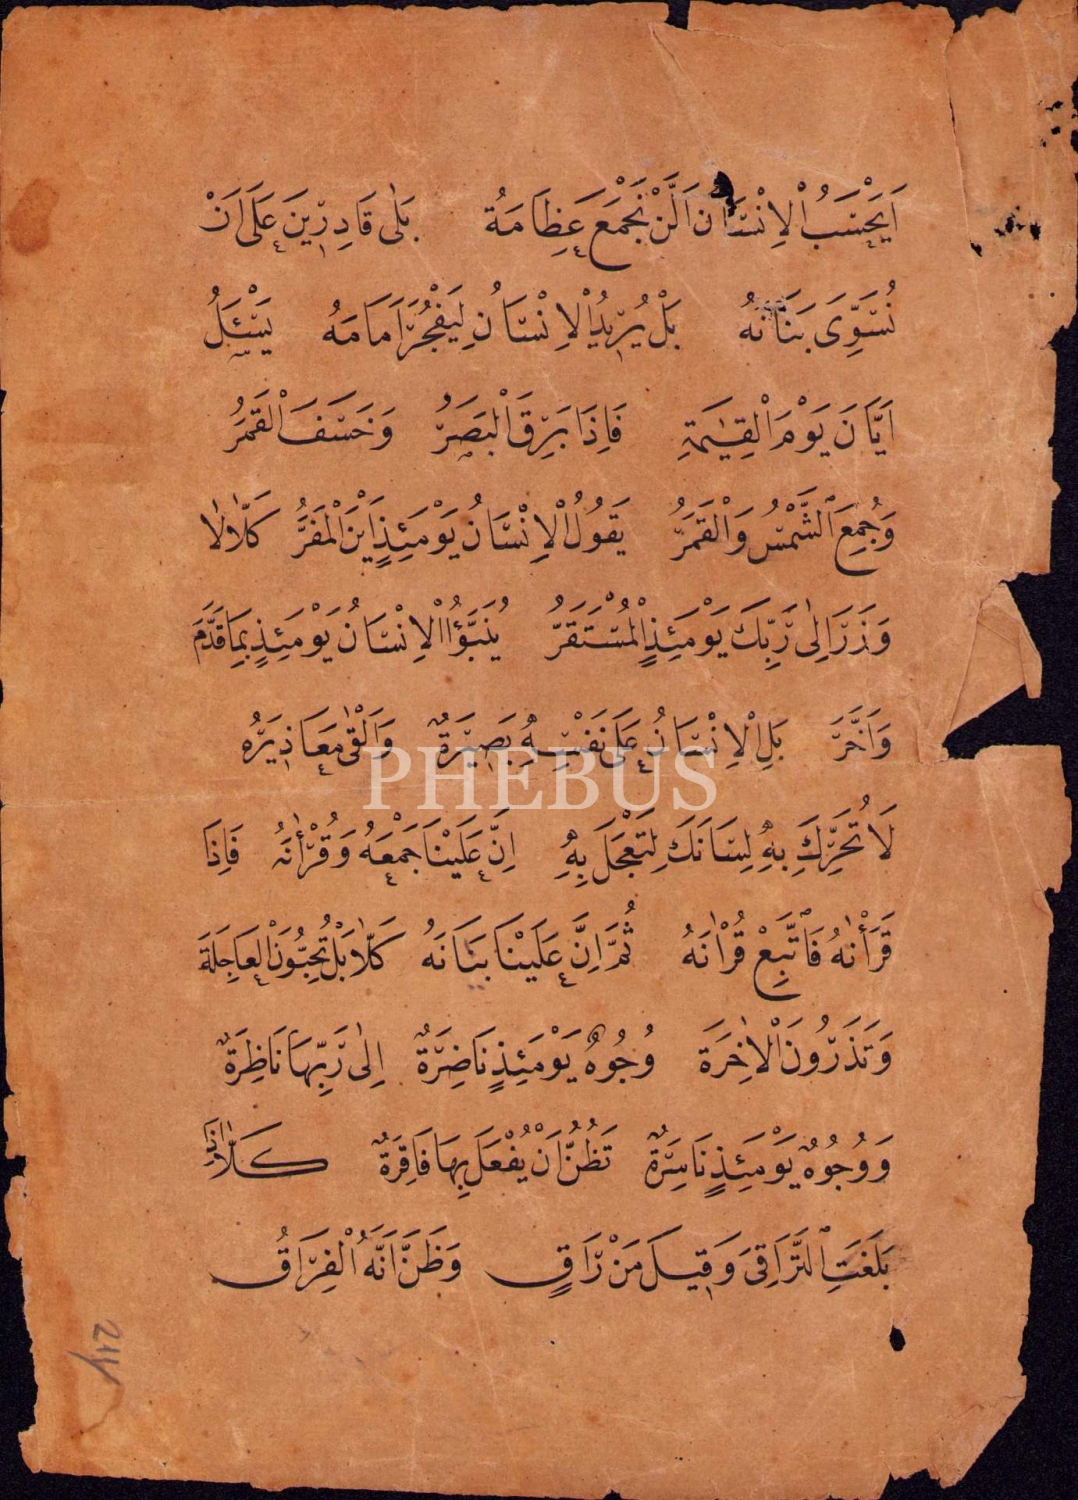 اَيَحْسَبُ الْاِنْسَانُ اَلَّنْ نَجْمَعَ عِظَامَهُ بَلٰى قَادِرِينَ عَلَى اَنْ
نُسَوِّىَ بَنَانَهُ بَلْ يُرِيدُ الْاِنْسَانُ لِيَفْجُرَ اَمَامَهُ يَسْئَلُ
اَيَّانَ يَوْمُ الْقِيٰمَةِ فَاِذَا بَرِقَ الْبَصَرُ وَخَسَفَ الْقَمَرُ
وَجُمِعَ الشَّمْسُ وَالْقَمَرُ يَقُولُ الْاِنْسَانُ يَوْمَئِذٍ اَيْنَ الْمَفَرُّ كَلَّا لَا
وَزَرَ اِلٰى رَبِّكَ يَوْمَئِذٍ الْمُسْتَقَرُّ يُنَبَّؤُا الْاِنْسَانُ يَوْمَئِذٍ بِمَا قَدَّمَ
وَاَخَّرَ بَلِ الْاِنْسَانُ عَلَى نَفْسِهِ بَصِيرَةٌ وَاَلْقٰى مَعَاذِيرَهُ
PHEBUS
لَا تُحَرِّكْ بِهِ لِسَانَكَ لِتَعْجَلَ بِهِ اِنَّ عَلَيْنَا جَمْعَهُ وَقُرْاٰنَهُ فَاِذَا
قَرَأْنٰهُ فَاتَّبِعْ قُرْاٰنَهُ ثُمَّ اِنَّ عَلَيْنَا بَيَانَهُ كَلَّا بَلْ تُحِبُّونَ الْعَاجِلَةَ
وَتَذَرُونَ الْاٰخِرَةَ وُجُوهٌ يَوْمَئِذٍ نَاضِرَةٌ اِلٰى رَبِّهَا نَاظِرَةٌ
وَوُجُوهٌ يَوْمَئِذٍ بَاسِرَةٌ تَظُنُّ اَنْ يُفْعَلَ بِهَا فَاقِرَةٌ كَلَّا اِذَا
بَلَغَتِ التَّرَاقِىَ وَقِيلَ مَنْ رَاقٍ وَظَنَّ اَنَّهُ الْفِرَاقُ